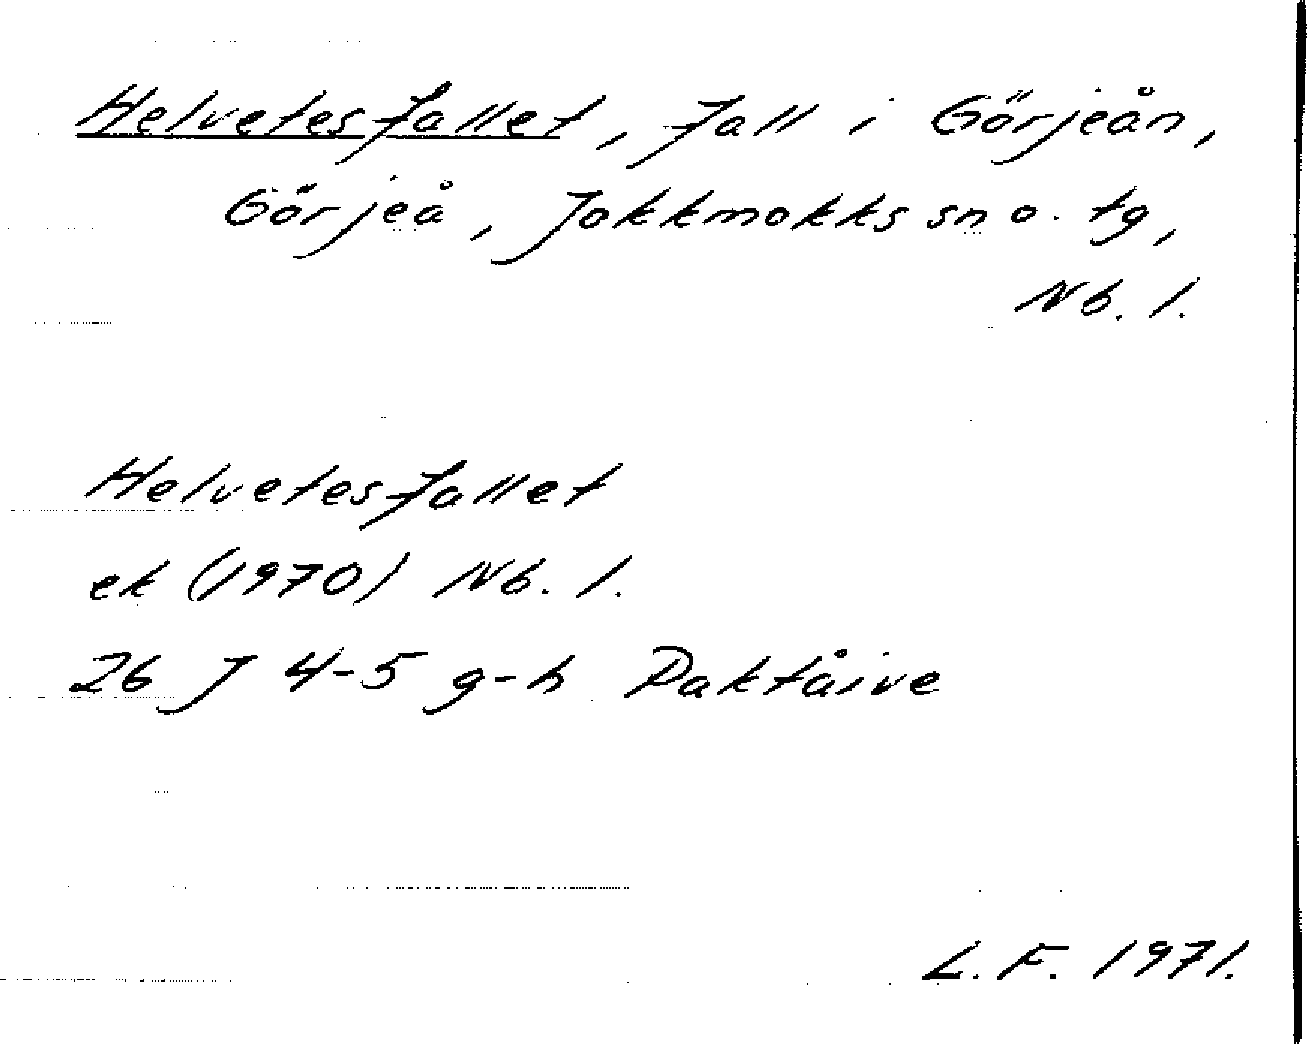 Helvetesfallet, fall i Görjeån,
Görjeå, Jokkmokks sn o. tg,
Nb. l.
Helvetesfallet
ek (1970) Nb. l.
26 J 4-5 g-h Paktåive
L. F. 1971.